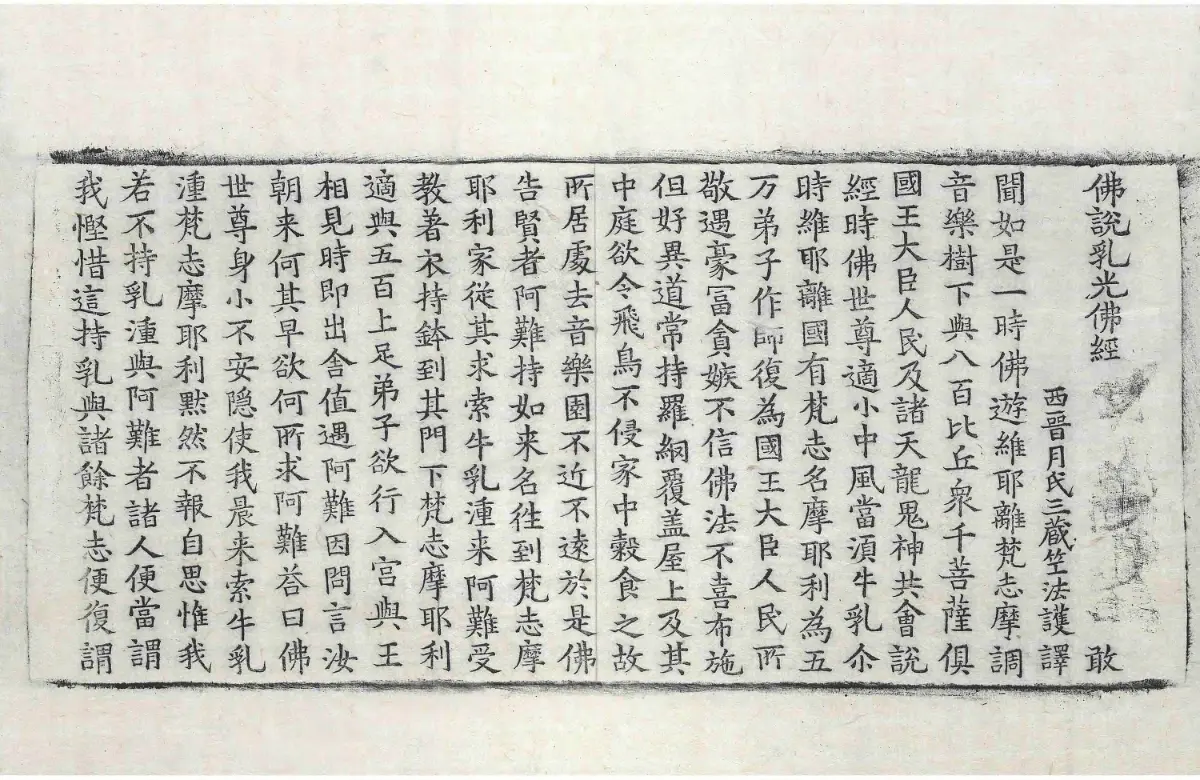 佛說乳光佛經 敢
西晉月氏三藏竺法護譯
聞如是一時佛遊維耶離梵志摩調
音樂樹下與八百比丘衆千菩薩俱
國王大臣人民及諸天龍鬼神共會說
經時佛世尊適小中風當湏牛乳尒
時維耶離國有梵志名摩耶利為五
万弟子作師復為國王大臣人民所
敬遇豪冨貪嫉不信佛法不喜布施
但好異道常持羅網覆盖屋上及其
中庭欲令飛鳥不侵家中穀食之故
所居處去音樂園不近不遠於是佛
告賢者阿難持如来名徃到梵志摩
耶利家從其求索牛乳湩来阿難受
教著衣持鉢到其門下梵志摩耶利
適與五百上足弟子欲行入宮與王
相見時即出舎值遇阿難因問言汝
朝来何其早欲何所求阿難荅曰佛
世尊身小不安隠使我晨来索牛乳
湩梵志摩耶利默然不報自思惟我
若不持乳湩與阿難者諸人便當謂
我慳惜這持乳與諸餘梵志便復謂